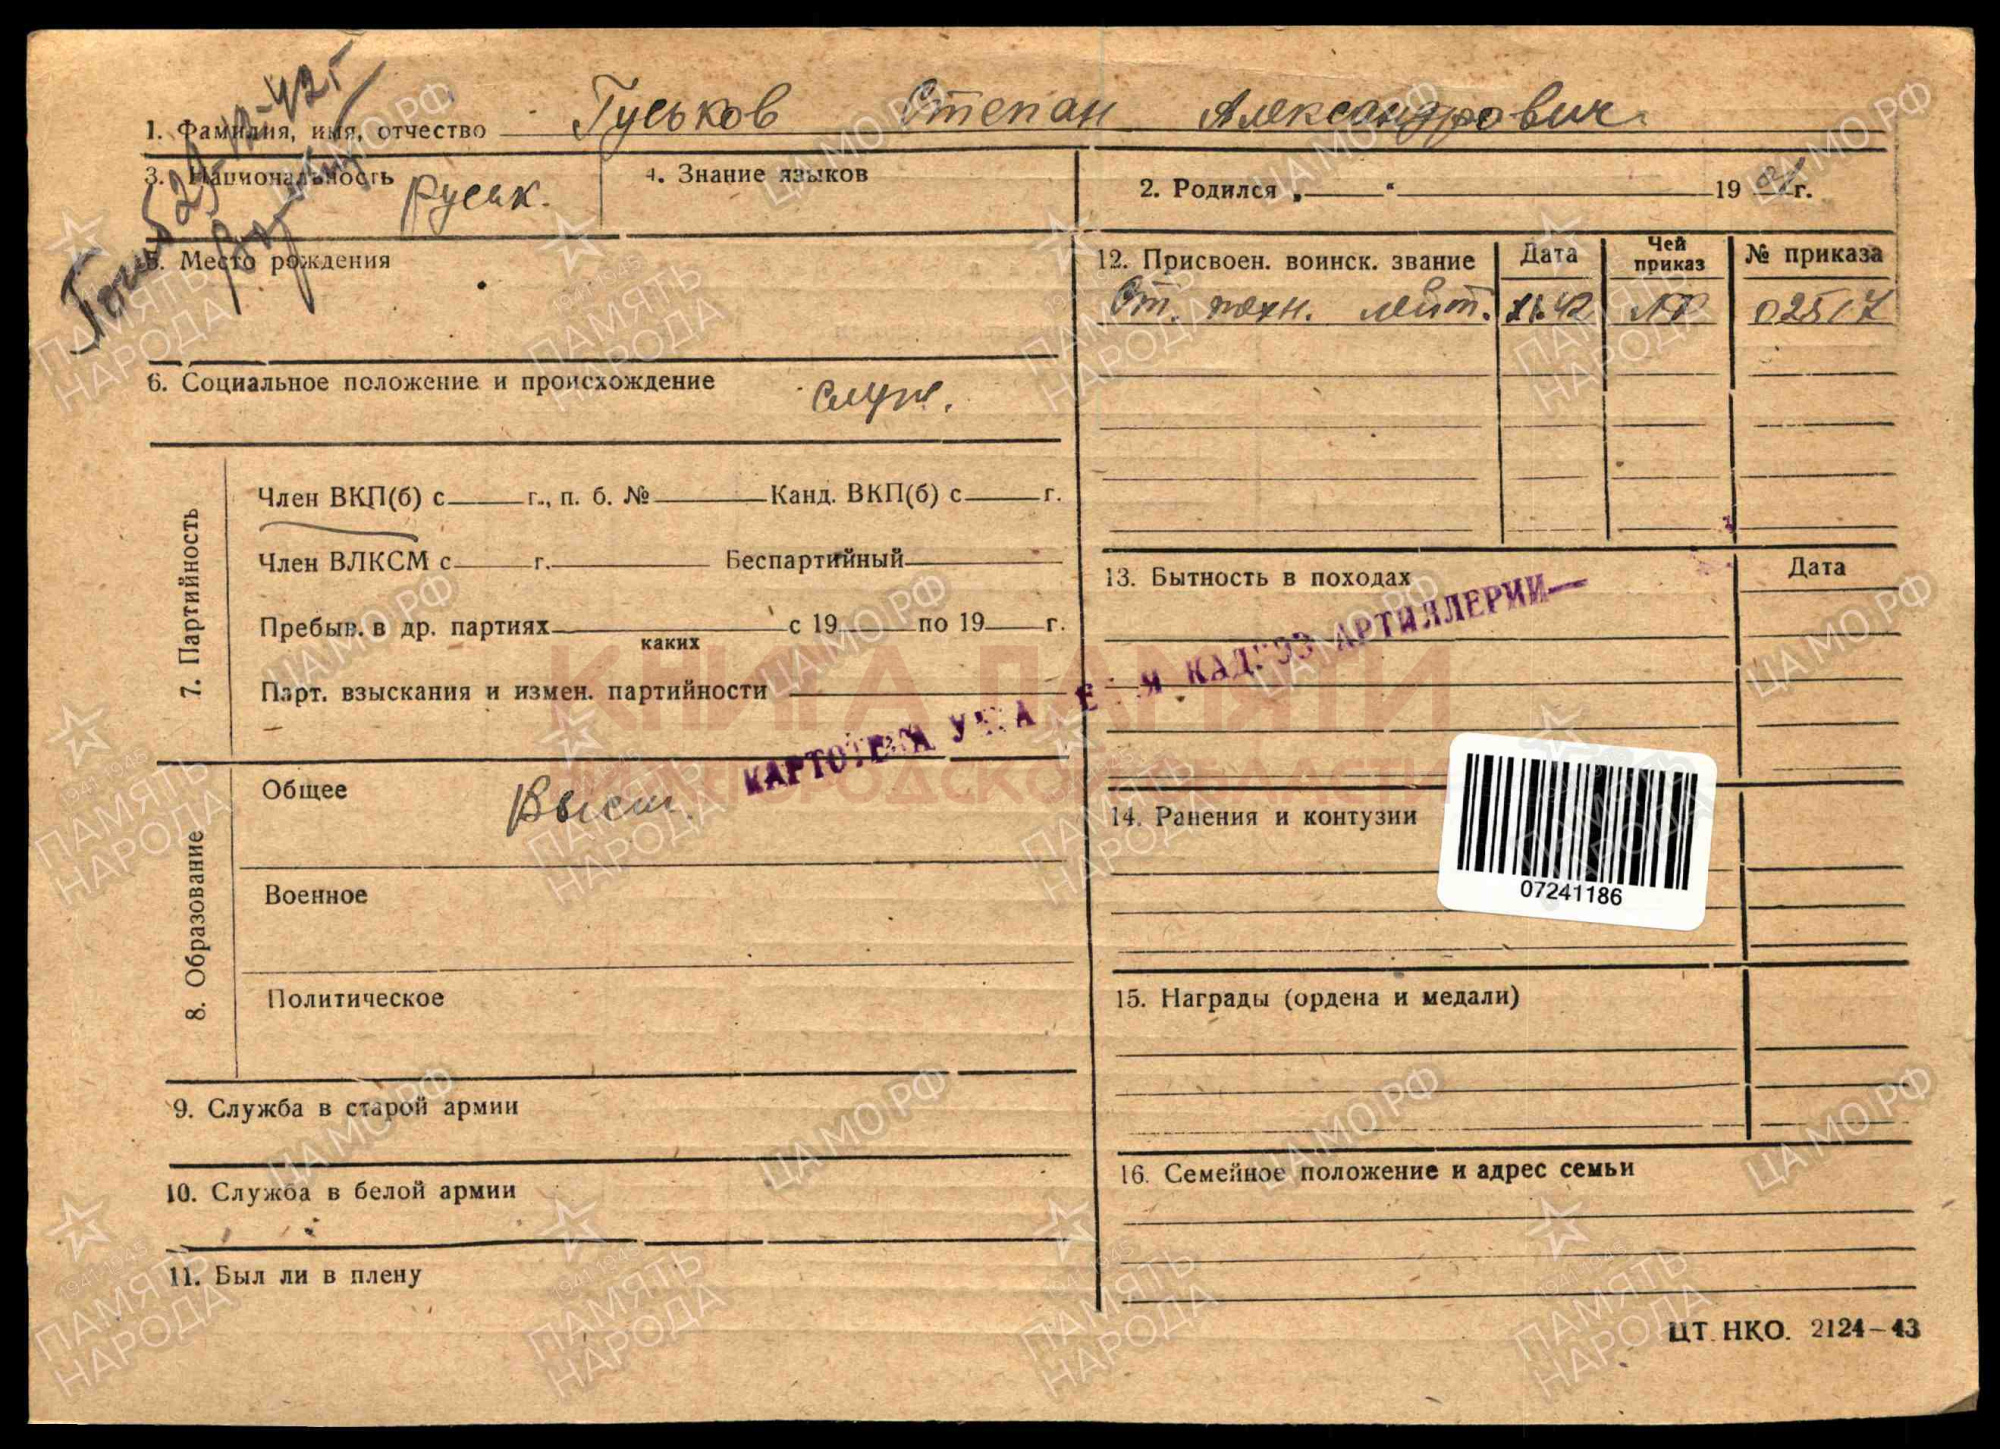 Погиб 23-12-42г
1. Фамилия, имя, отчество Гуськов Степан Александрович
3. Национальность русск.
4. Знание языков
2. Родился „ “ 19 г.
5. Место рождения
12. Присвоен. воинск. звание Дата Чей приказ № приказа
Ст. техн. лейт. 42 02517
6. Социальное положение и происхождение служ.
7. Партийность
Член ВКП(б) с г., п. б. № Канд. ВКП(б) с г.
Член ВЛКСМ с г. Беспартийный
Пребыв. в др. партиях с 19 по 19 г.
каких
Парт. взыскания и измен. партийности
13. Бытность в походах Дата
КАРТОТЕКА КАДРОВ АРТИЛЛЕРИИ
КНИГА ПАМЯТИ
НИЖЕГОРОДСКОЙ ОБЛАСТИ
8. Образование
Общее Высш.
Военное
Политическое
14. Ранения и контузии
07241186
15. Награды (ордена и медали)
9. Служба в старой армии
10. Служба в белой армии
11. Был ли в плену
16. Семейное положение и адрес семьи
ЦТ. НКО. 2124-43
ЦАМО.РФ
1941-1945
ПАМЯТЬ
НАРОДА